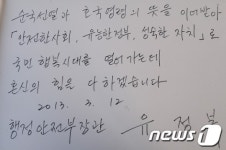 순국선열과 호국영령의 뜻을 이어받아
「안전한사회, 유능한정부, 성숙한 자치」로
국민 행복시대를 열어가는데
혼신의 힘을 다 하겠습니다
2013. 3. 12.
행정안전부장관 유 정 복
뉴스1